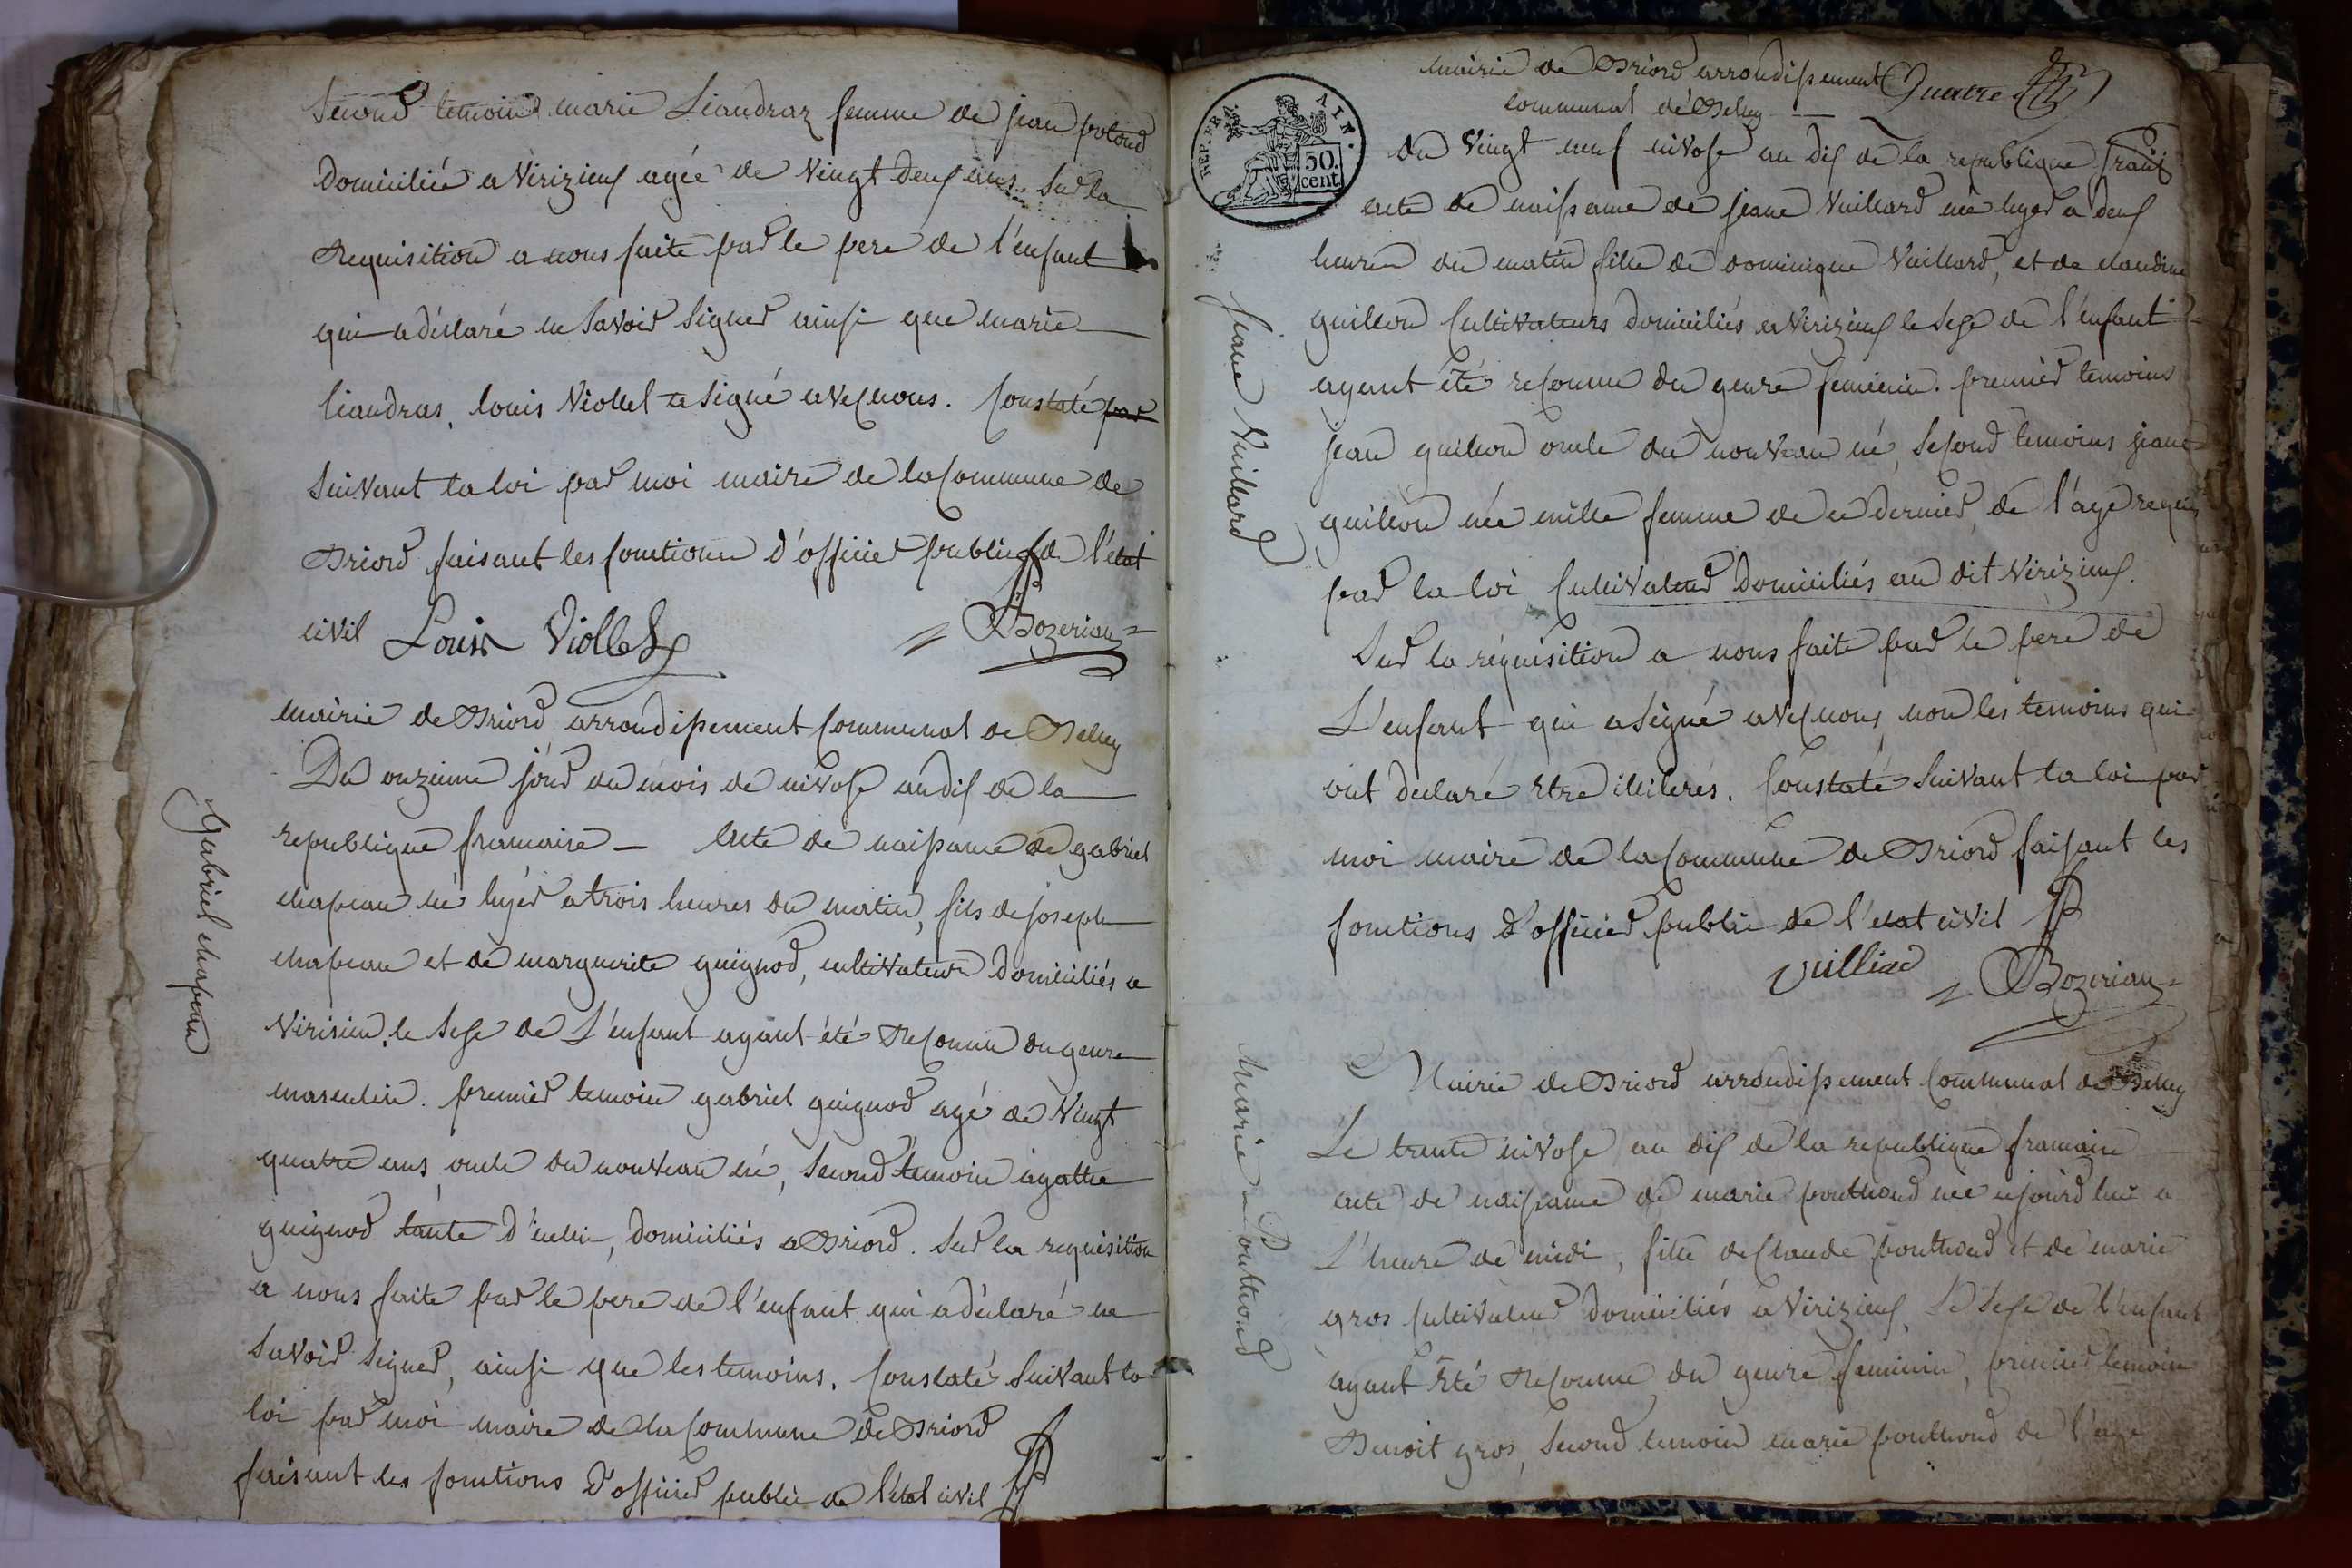 Second temoin marie Liandraz femme de jean poloud
domiciliée a Virizieux agée de vingt deux ans. Sur la
Requisition a nous faite par le pere de l'enfant
qui a déclaré ne savoir signer ainsi que marie
liandras, louis Viollet a signé avec nous. Constaté par
suivant la loi par moi maire de la Commune de
Briord faisant les fonctions d'officier public de l'état
civil Louis Viollet Bozerian
mairie de Briord arrondissement Communal de Belley
Du onzieme jour du mois de nivose an dix de la
republique francaise — Acte de naissance de gabriel
chapeau né hyer a trois heures du matin, fils de joseph
chapeau et de marguerite guignod, cultivateurs domiciliés a
Virisieu, le sexe de L'enfant ayant été Reconnu du genre
masculin. premier temoin gabriel guignod agé de vingt
quatre ans, oncle du nouveau né, second temoin agathe
guignod tante d'icelui, domiciliés a Briord. Sur la requisition
a nous faite par le pere de l'enfant qui a déclaré ne
savoir signer, ainsi que les temoins. Constaté suivant la
loi par moi maire de la Commune de Briord
faisant les fonctions d'officier public de l'état civil
Gabriel chapeau
mairie de Briord arrondissement Quatre
communal de Belley
REP. FRA. AIN. 50. cent.
du vingt neuf nivose an dix de la republique franç
acte de naissance de jeane Vuillard née hyer a deux
heures du matin fille de dominique Vuillard, et de claudine
guillon Cultivateurs domiciliés a Virizieux le sexe de l'enfant
ayant été reconnu du genre feminin. premier temoins
jean guillon oncle du nouveau né, second temoins jeane
guillon née mille femme de ce dernier, de l'age requis
par la loi Cultivateur domiciliés au dit Virizieux.
Sur la réquisition a nous faite par le pere de
L'enfant qui a signé avec nous, non les temoins qui
ont declaré être illiterés. Constaté suivant la loi par
moi maire de la Commune de Briord faisant les
fonctions d'officier public de l'etat civil
Vuilliard Bozerian
Jeane Vuillard
Mairie de Briord arrondissement Communal de Belley
Le trente nivose an dix de la republique francaise
acte de naissance de marie pouthoud née ajourd'hui a
L'heure de midi, fille de Claude pouthoud et de marie
gros Cultivateur domiciliés a Virizieux, Le sexe de l'enfant
ayant été Reconnu du genre feminin, premier temoin
Benoit gros, second temoin marie pouthoud de l'age
Marie Pouthoud